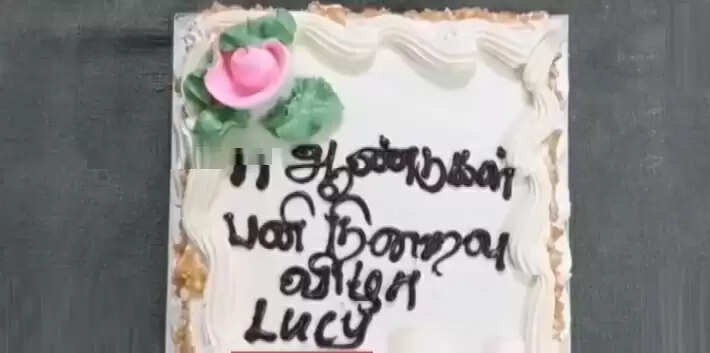 11 ஆண்டுகள்
பணி நிறைவு
விழா
LUCY